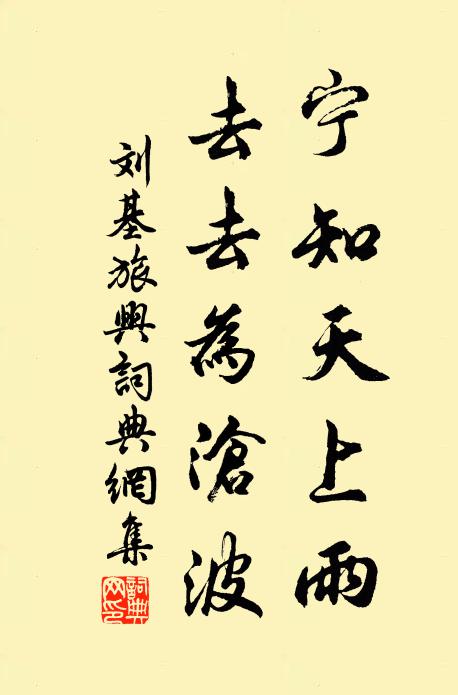 宁知天上雨
去去為滄波
刘基旅興詞典網集
詞典網印